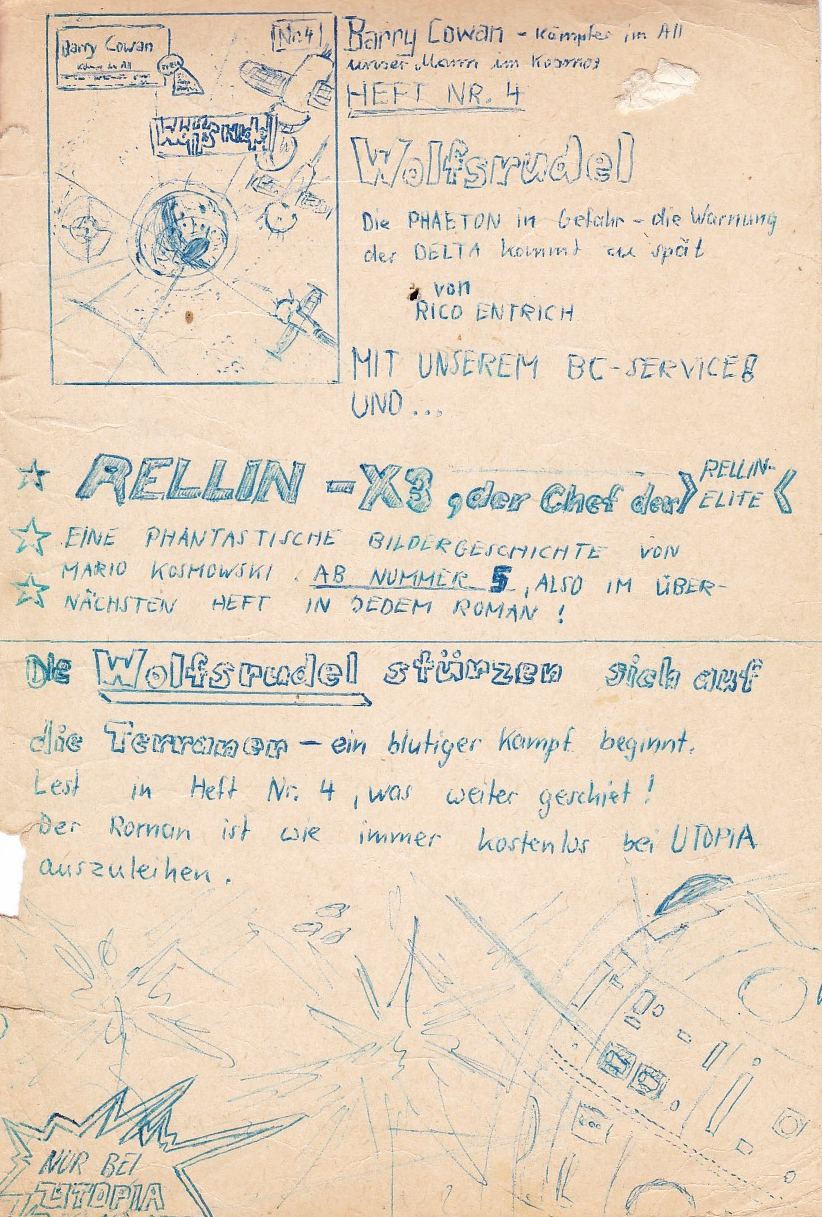 Barry Cowan
Kämpfer im All
Nr. 4
Wolfsrudel
Barry Cowan - Kämpfer im All
unser Mann im Kosmos
HEFT NR. 4
Wolfsrudel
Die PHAETON in Gefahr - die Warnung
der DELTA kommt zu spät
von
RICO ENTRICH
MIT UNSEREM BC-SERVICE!
UND...
RELLIN - X3, der Chef der RELLIN-
ELITE
EINE PHANTASTISCHE BILDERGESCHICHTE VON
MARIO KOSMOWSKI. AB NUMMER 5, ALSO IM ÜBER-
NÄCHSTEN HEFT IN JEDEM ROMAN!
Die Wolfsrudel stürzen sich auf
die Terraner - ein blutiger Kampf beginnt.
Lest in Heft Nr. 4, was weiter geschiet!
Der Roman ist wie immer kostenlos bei UTOPIA
auszuleihen.
NUR BEI
UTOPIA